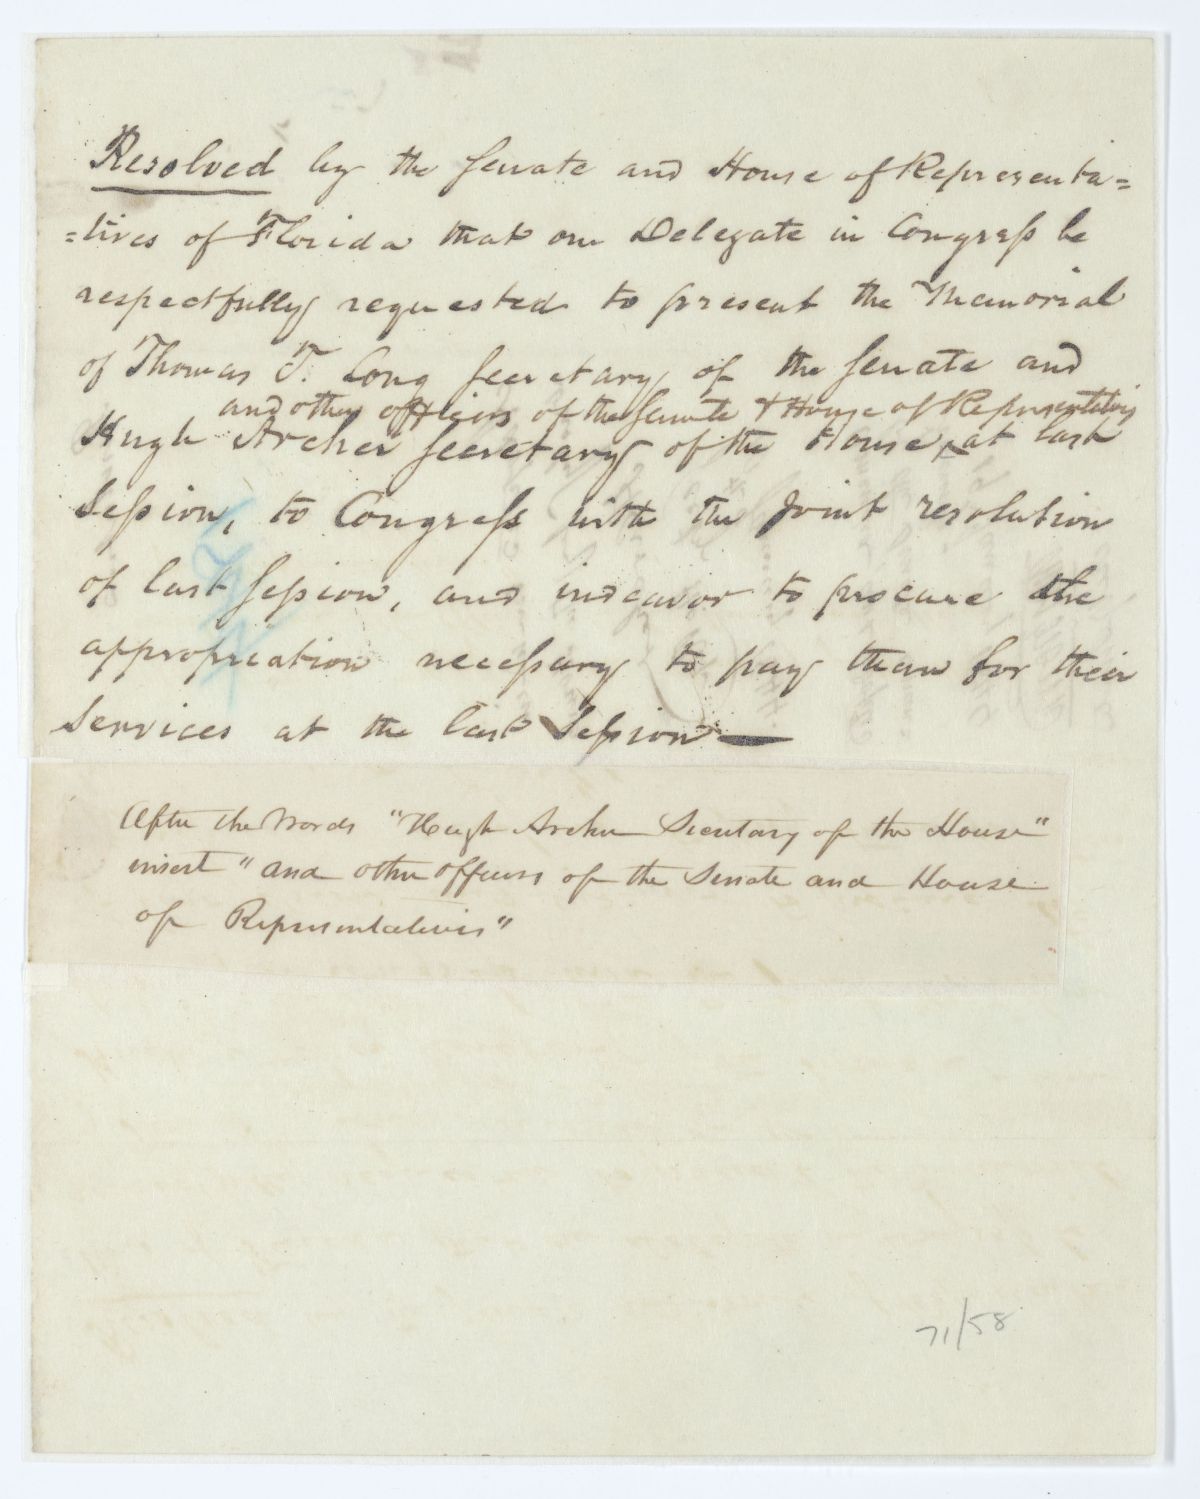 Resolved by the Senate and House of Representa=
=tives of Florida that our Delegate in Congress be
respectfully requested to present the Memorial
of Thomas T. Long Secretary of the Senate and
and other officers of the Senate & House of Representatives
Hugh Archer Secretary of the House, at last
Session, to Congress with the Joint resolution
of last Session, and indeavor to procure the
appropriation necessary to pay them for their
Services at the last Session —
After the Words "Hugh Archer Secretary of the House"
insert "and other officers of the Senate and House
of Representatives"
71/58